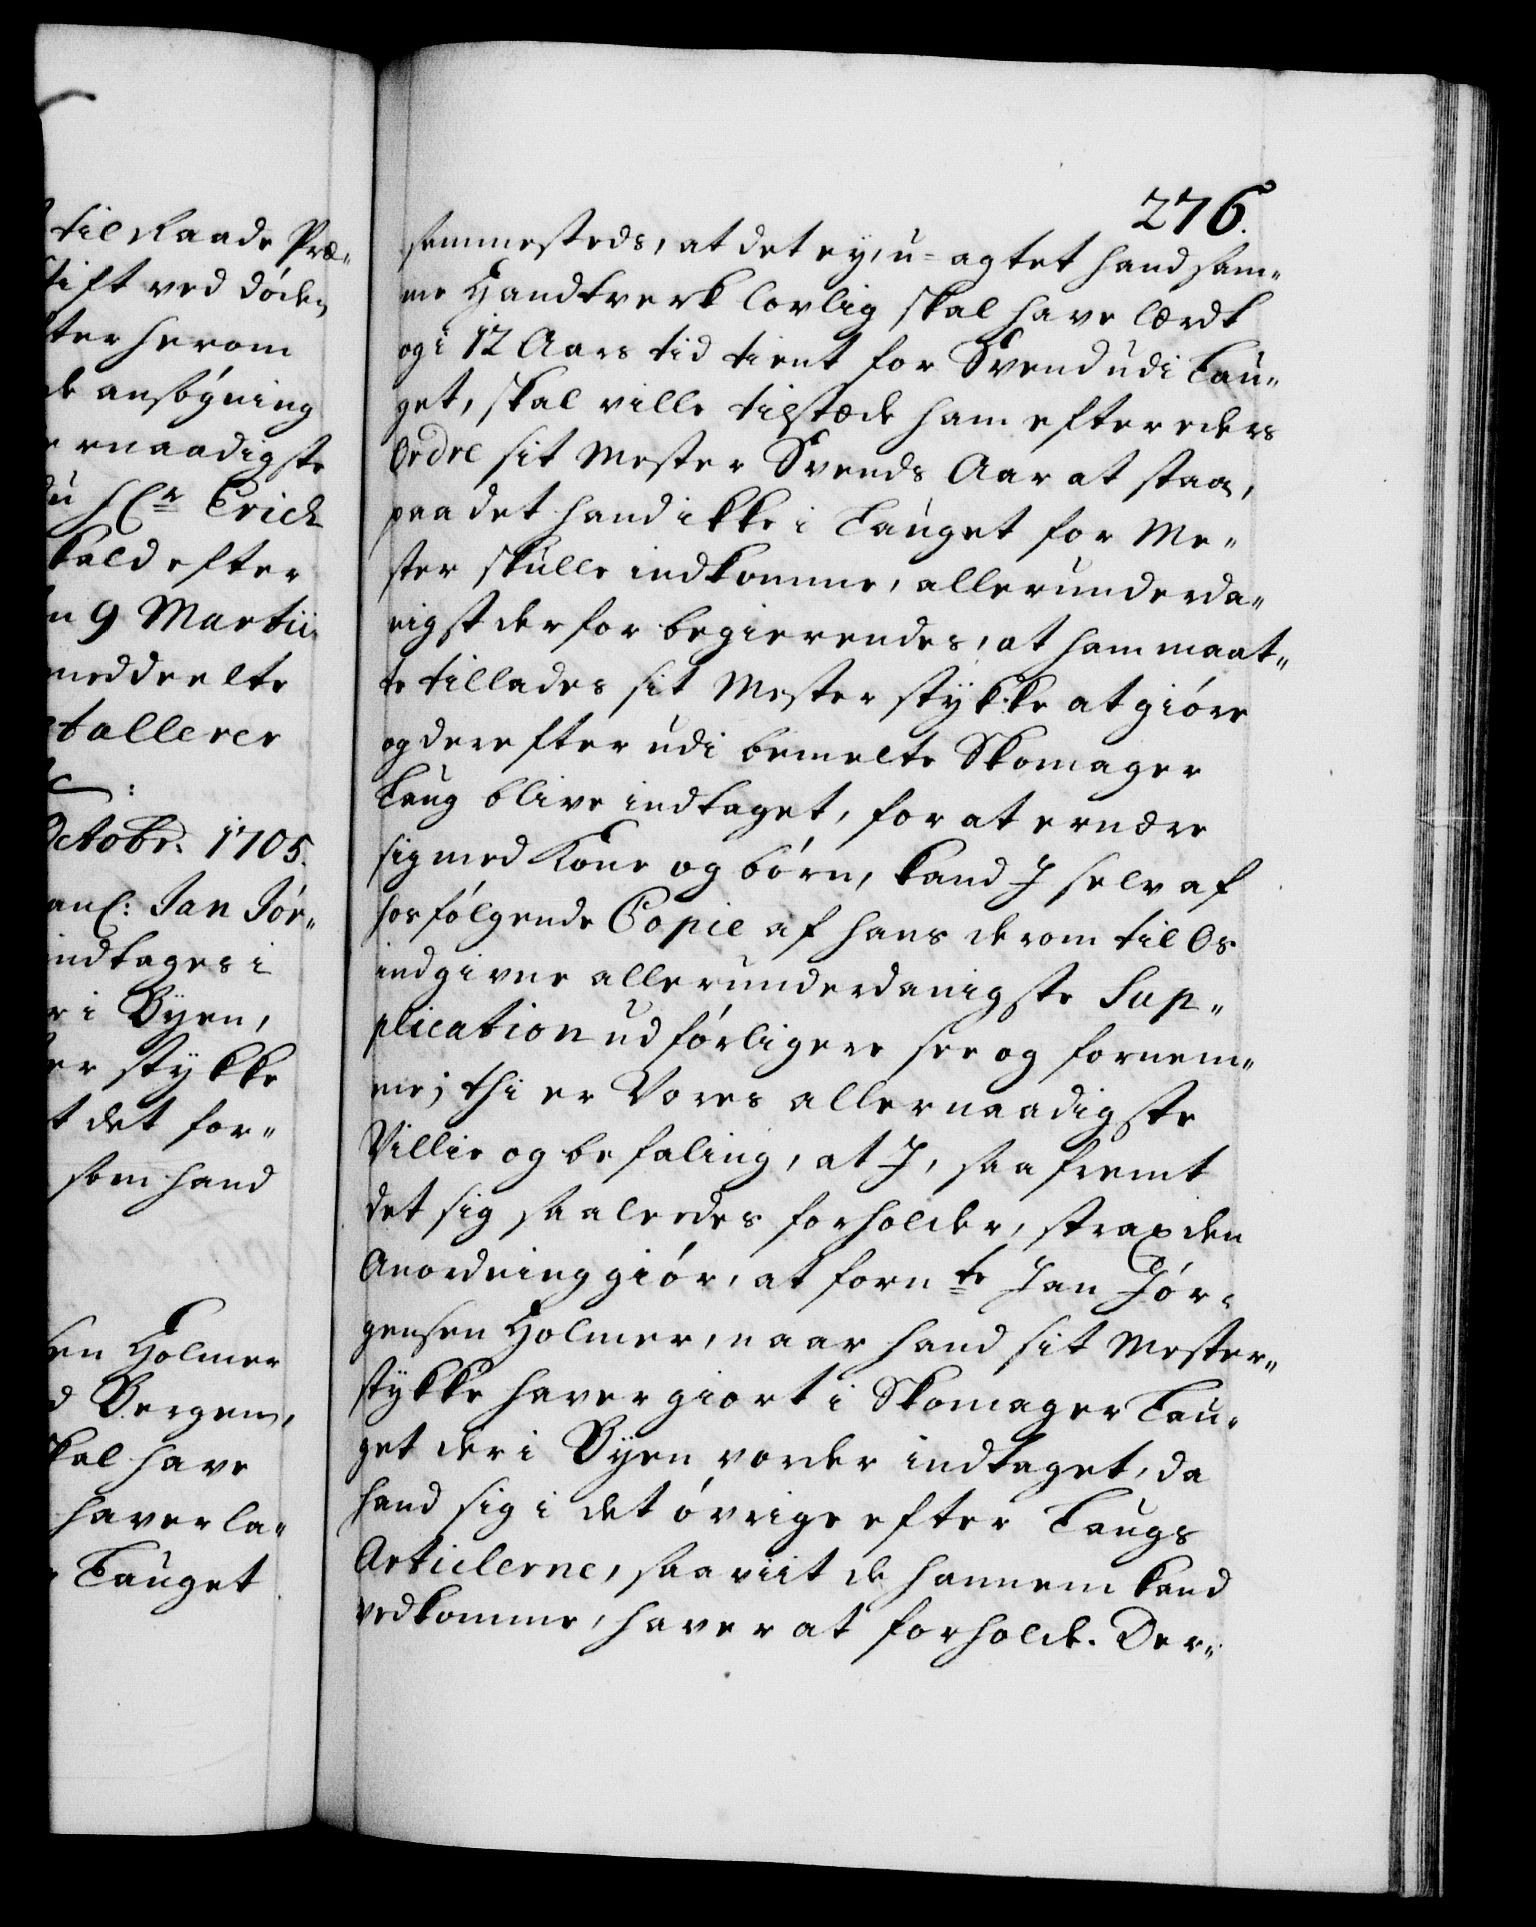 til Raade Præ-
stift ved døden
ter herom
de ansøgning
ernaadigste
du Hr Erich
kald efter
n 9 Martii
meddeelte
tallerer
Octobr. 1705.
anc: Jan Jör-
indtages i
r i Byen,
er stykke
t det for-
som hand
sen Holmer
d Bergen,
skal have
haver la-
Lauget
276.
sammesteds, at det ey, u-agtet hand sam-
me Handtverk lovlig skal have lærdt
og i 12 Aars tid tient for Svend udi Lau-
get, skal ville tilstæde ham efter eders
Ordre sit Mester Svends Aar at staa,
paa det hand ikke i Lauget for Me-
ster skulle indkomme, allerunderda-
nigst derfor begierendes, at ham maat-
te tillades sit Mester stykke at giöre
og derefter udi bemelte Skomager
Laug blive indtaget, for at ernære
sig med Kone og börn, kand J selv af
hosfölgende Copie af hans derom til Os
indgivne allerunderdanigste Sup-
plication udförligere see og fornem-
me; thi er Vores allernaadigste
Villie og befaling, at J, saafremt
det sig saaledes forholder, strax den
Anordning giör, at fornte Jan Jör-
gensen Holmer, naar hand sit Mester-
stykke haver giort i Skomager Lau-
get der i Byen vorder indtaget, da
hand sig i det övrige efter Laugs
Articlerne, saaviit de hannem kand
vedkomme, haver at forholde. Der-